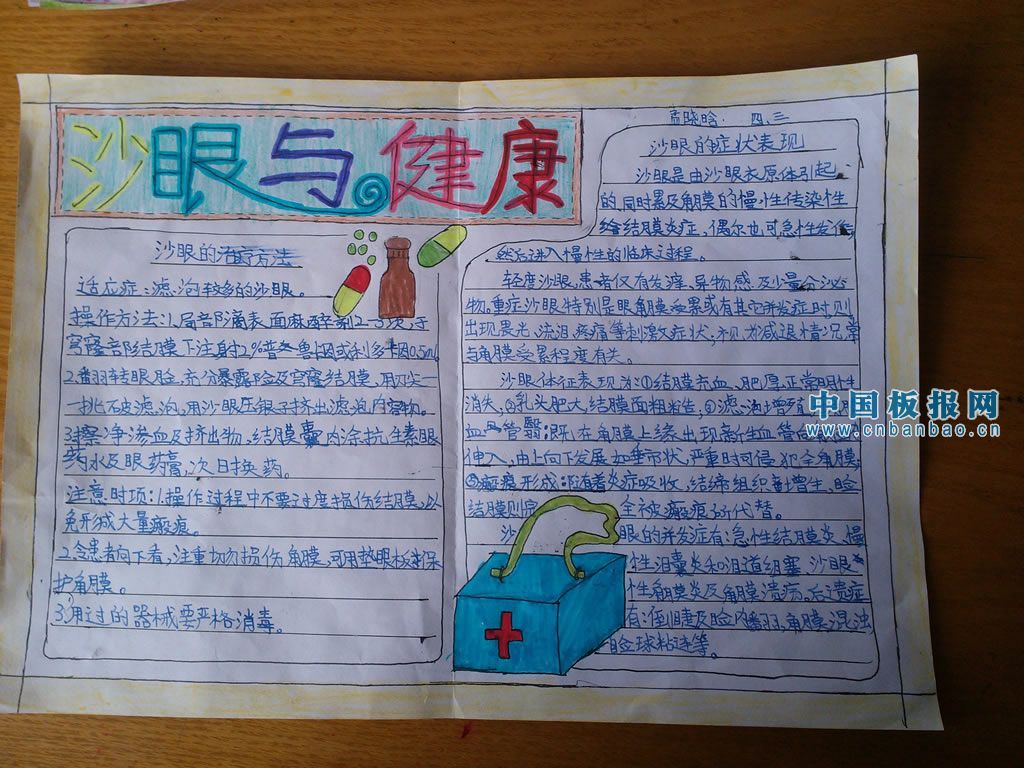 沙眼与健康
沙眼的治疗方法
适应症:滤泡较多的沙眼。
操作方法:1.局部滴表面麻醉剂2-3次,于
穹窿部结膜下注射2%普鲁卡因或利多卡因0.5ml
2.翻转眼脸,充分暴露险及穹窿结膜,用尖一
一挑破滤泡,用沙眼压镊子挤出滤泡内容物。
3.擦净渗血及挤出物,结膜囊内涂抗生素眼
药水及眼药膏,次日换药。
注意时项:1.操作过程中不要过度损伤结膜,以
免形成大量瘢痕。
2.患者向下看,注重切勿损伤角膜,可用垫眼板保
护角膜。
3.用过的器械要严格消毒。
晓晗. 四.三
沙眼的症状表现
沙眼是由沙眼衣原体引起
的,同时累及角膜的慢性传染性
结膜炎症,偶尔也可急性发作,
然后进入慢性的临床过程。
轻度沙眼,患者仅有发痒、异物感及少量分泌
物。重症沙眼特别是眼角膜受累或有其它并发症时,则
出现畏光、流泪、疼痛等刺激症状,视力减退情况常
与角膜受累程度有关。
沙眼体征表现为:①结膜充血、肥厚,正常
消失,②乳头肥大,结膜面粗糙,③滤泡增
血管翳:既在角膜上缘出现新生血管
伸入,由上向下发展如垂帘状,严重时可侵犯全角膜,
⑤瘢痕形成:随着炎症吸收,结缔组织增生,睑
结膜则 全被瘢痕所代替。
沙 眼的并发症有:急性结膜炎、慢
性泪囊炎和泪道组塞、沙眼
性角膜炎及角膜溃疡。后遗症
有:倒睫及睑内翻,角膜混浊,
睑球粘连等。
中国板报网
www.cnbanbao.cn